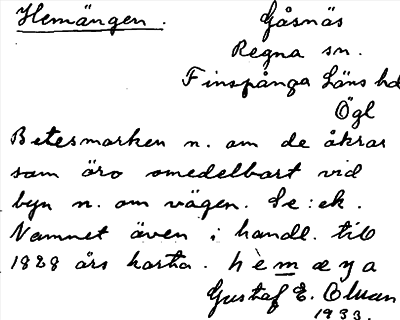 Hemängen.
Gåsnäs
Regna sn.
Finspånga Läns hd
Ögl
Betesmarken n. om de åkrar
som äro omedelbart vid
byn n. om vägen. Se: ek.
Namnet även i handl. till
1828 års karta.
Gustaf E. Olman
1933.